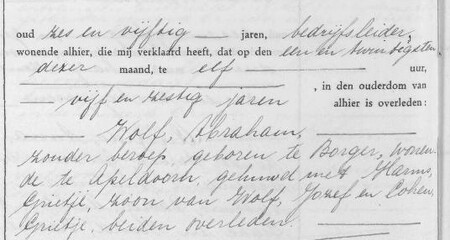 oud zes en vijftig jaren, bedrijfsleider,
wonende alhier, die mij verklaard heeft, dat op den een en twintigsten
dezer maand, te elf uur,
, in den ouderdom van
vijf en zestig jaren alhier is overleden:
Wolf, Abraham,
zonder beroep, geboren te Borger, wonen-
de te Apeldoorn, gehuwd met Harms,
Grietje, zoon van Wolf, Jozef en Cohen,
Grietje, beiden overleden.